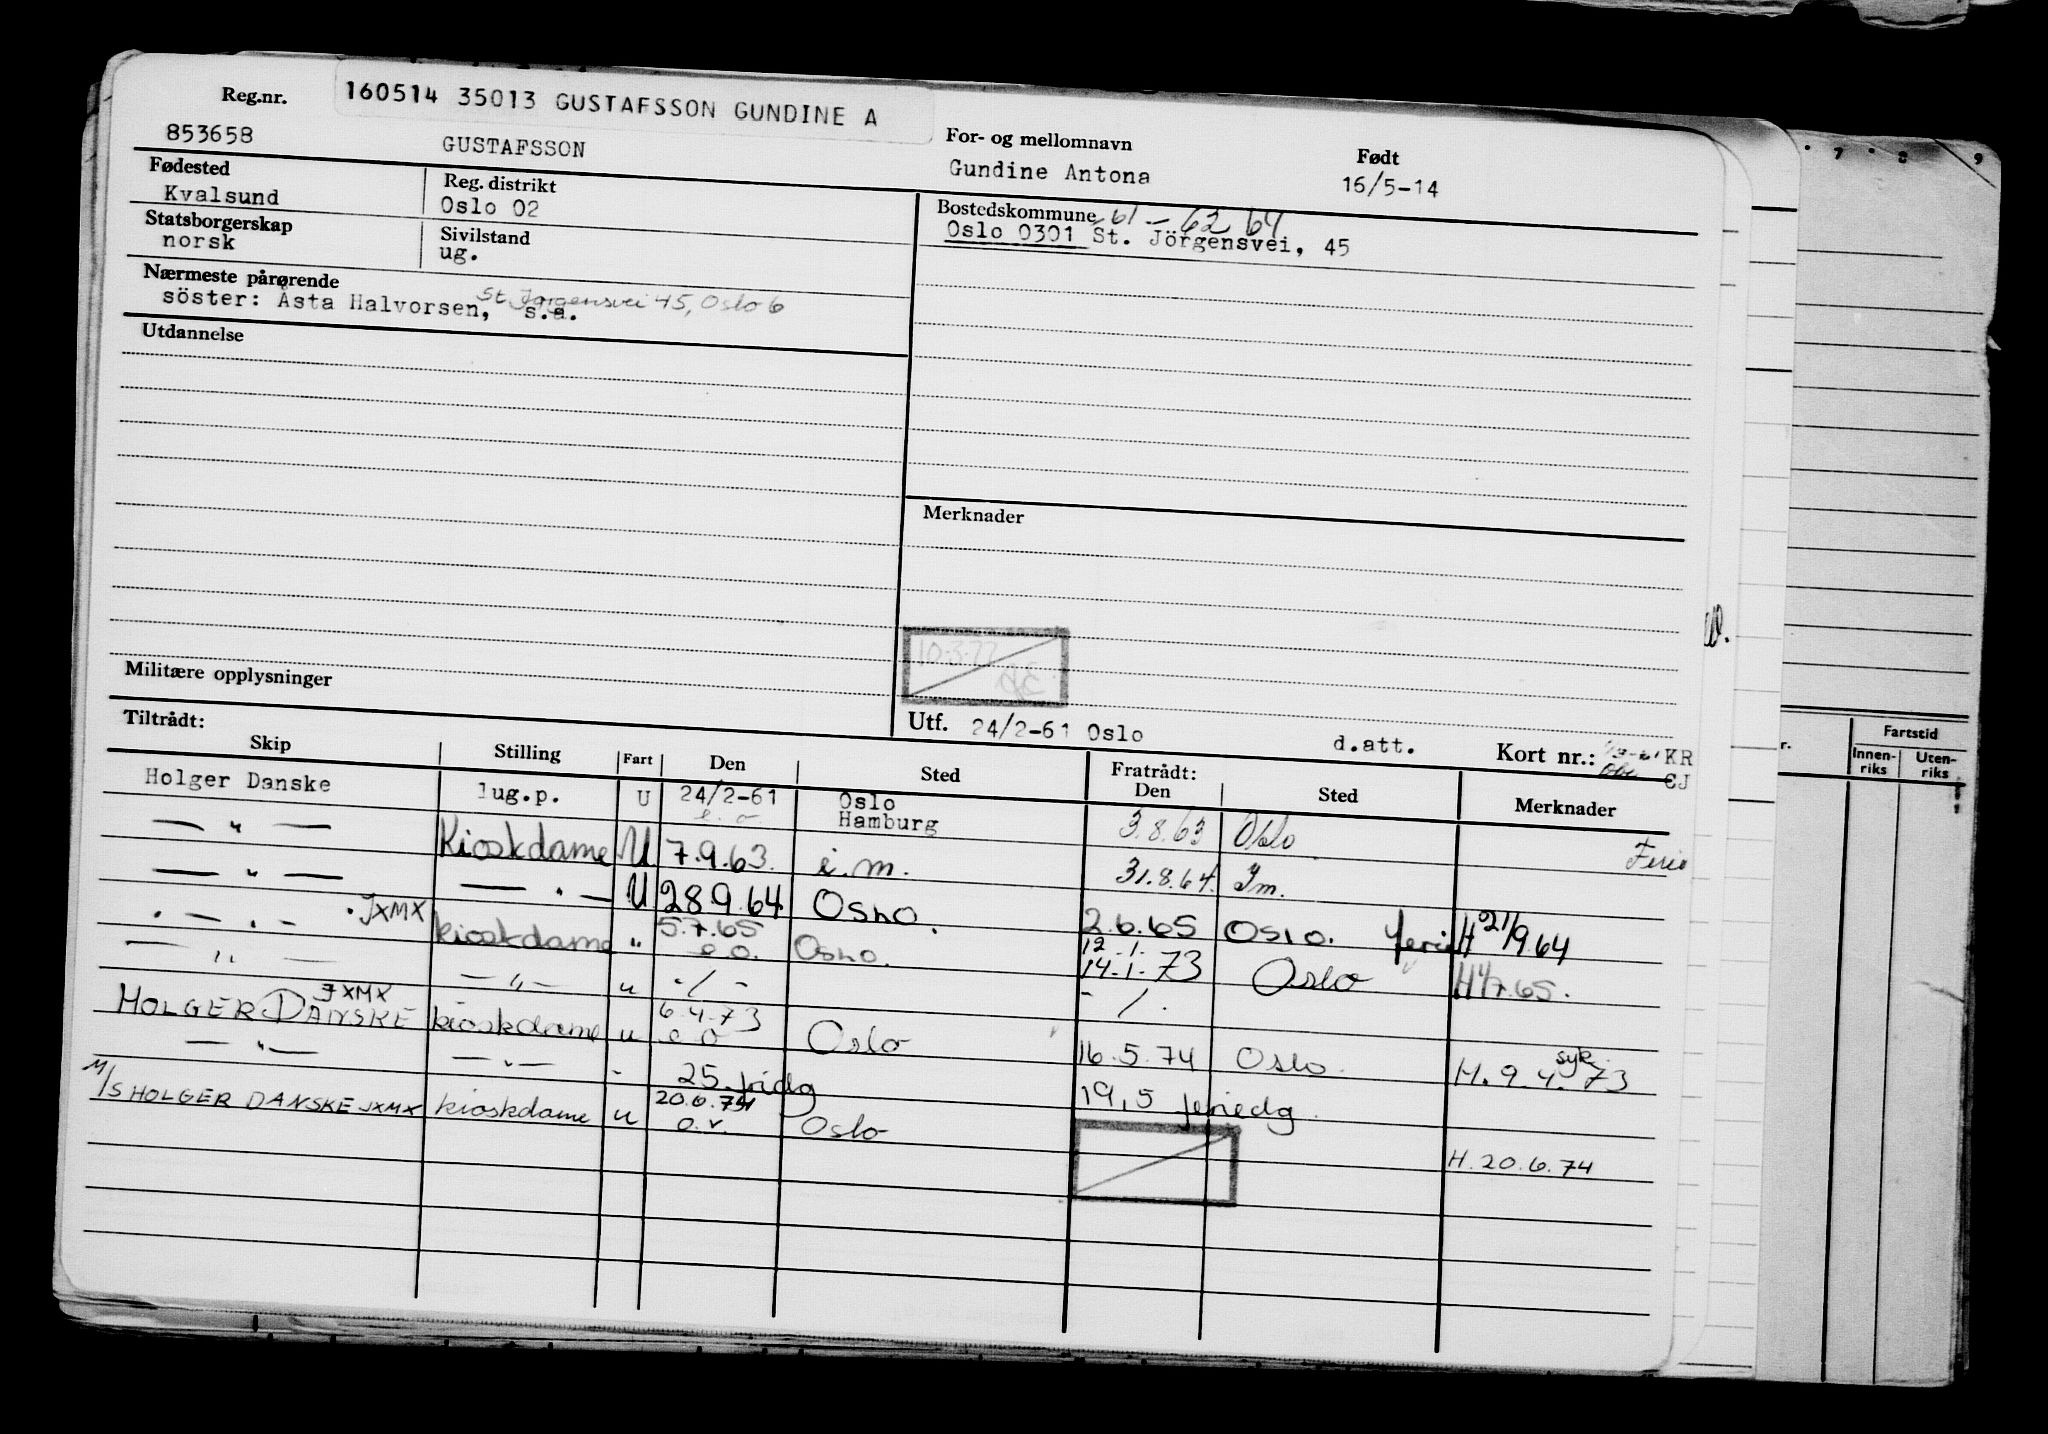 Reg.nr. 160514 35013 GUSTAFSSON GUNDINE A
853658 GUSTAFSSON
For- og mellomnavn
Gundine Antona
Født
16/5-14
Fødested
Kvalsund
Reg. distrikt
Oslo 02
Bostedskommune 61 - 62 64
Oslo 0301 St. Jörgensvei, 45
Statsborgerskap
norsk
Sivilstand
ug.
Nærmeste pårørende
St. Jørgensvei 45, Oslo 6
söster: Åsta Halvorsen, s.a.
Utdannelse
Merknader
10.3.77
Militære opplysninger
Utf. 24/2-61 Oslo d.att. Kort nr.: KR
CJ
Tiltrådt:
Skip Stilling Fart Den Sted Fratrådt: Den Sted Merknader
Holger Danske lug.p. U 24/2-61 Oslo
Hamburg 3.8.63 Oslo
— " — Kioskdame U 7.9.63. i.m. 31.8.64. Im. Ferie
— " — — " — U 28.9.64 Oslo. 2.6.65 Oslo. ferie H 21/9.64
— " — JXMX kioskdame " 5.7.65 e.o. Oslo. 12.1. 14.1.73 Oslo H 4/7.65.
— " — — " — u - / - - / -
HOLGER DANSKE JXMX kioskdame u 6.4.73 e o Oslo 16.5.74 Oslo. H. 9.4.73 syk.
— " — — " — - 25 fridg 19,5 feriedg.
M/S HOLGER DANSKE JXMX kioskdame u 20.6.74 o.v. Oslo
H. 20.6.74
7 8 9
Fartstid
Innen-
riks
Uten-
riks